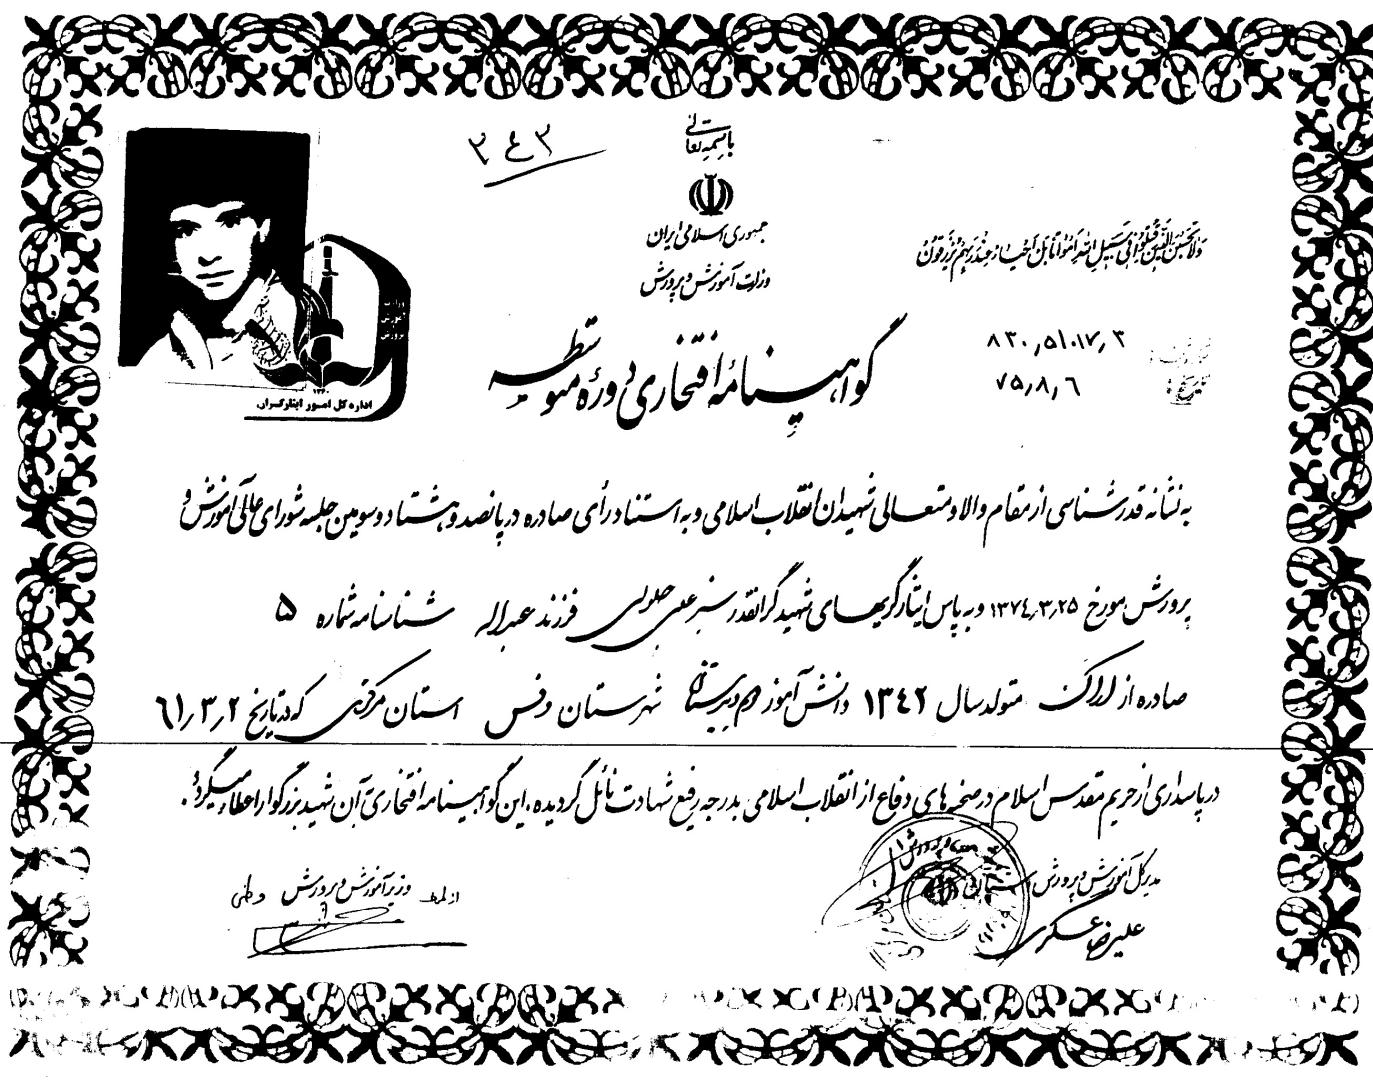 باسمه تعالی
۳۴۳
جمهوری اسلامی ایران
وزارت آموزش و پرورش
ولا تحسبن الذین قتلوا فی سبیل الله امواتا بل احیاء عند ربهم یرزقون
۸۳۰٫۵۱۰۱۷٫۳
تاریخ: ۷۵٫۸٫۶
گواهینامهٔ افتخاری دورهٔ متوسطه
اداره کل امور ایثارگران
به نشانه قدرشناسی از مقام والا و متعالی شهیدان انقلاب اسلامی و به استناد رأی صادره در پانصد و هشتاد و سومین جلسه شورای عالی آموزش و
پرورش مورخ ۱۳۷۴٫۳٫۲۵ و به پاس ایثارگریهای شهید گرانقدر فرزند عبداله شناسنامه شماره ۵
صادره از اراک متولد سال ۱۳۴۲ دانش آموز دوم دبیرستان شهرستان وفس استان مرکزی که در تاریخ ۶۱٫۳٫۲
در پاسداری از حریم مقدس اسلام در صحنه های دفاع از انقلاب اسلامی بدرجه رفیع شهادت نائل گردیده، این گواهینامه افتخاری به آن شهید بزرگوار اعطاء میگردد.
مدیرکل آموزش و پرورش استان
علیرضا عسکری
وزیر آموزش و پرورش